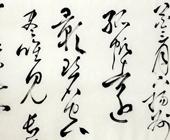 三月下揚州
孤帆遠
影碧空
盡唯見長